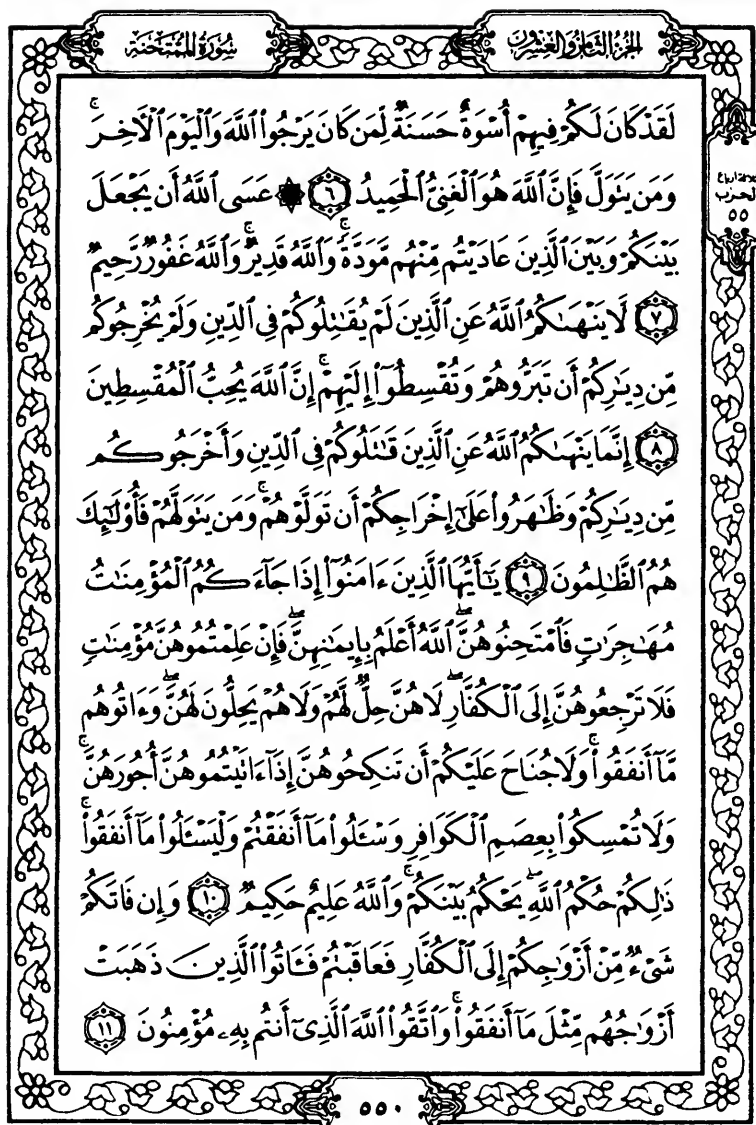 سُورَةُ المُمْتَحنَة
الجُزْءُ الثَّامِنُ وَالعِشْرُونَ
لَقَدْ كَانَ لَكُمْ فِيهِمْ أُسْوَةٌ حَسَنَةٌ لِّمَن كَانَ يَرْجُوا۟ ٱللَّهَ وَٱلْيَوْمَ ٱلْأَخِرَۚ
وَمَن يَتَوَلَّ فَإِنَّ ٱللَّهَ هُوَ ٱلْغَنِىُّ ٱلْحَمِيدُ ٦ ۞ عَسَى ٱللَّهُ أَن يَجْعَلَ
ثلاثة ارباع
الحزب
٥٥
بَيْنَكُمْ وَبَيْنَ ٱلَّذِينَ عَادَيْتُم مِّنْهُم مَّوَدَّةًۚ وَٱللَّهُ قَدِيرٌۚ وَٱللَّهُ غَفُورٌ رَّحِيمٌ
٧ لَا يَنْهَىٰكُمُ ٱللَّهُ عَنِ ٱلَّذِينَ لَمْ يُقَٰتِلُوكُمْ فِى ٱلدِّينِ وَلَمْ يُخْرِجُوكُم
مِّن دِيَٰرِكُمْ أَن تَبَرُّوهُمْ وَتُقْسِطُوٓا۟ إِلَيْهِمْۚ إِنَّ ٱللَّهَ يُحِبُّ ٱلْمُقْسِطِينَ
٨ إِنَّمَا يَنْهَىٰكُمُ ٱللَّهُ عَنِ ٱلَّذِينَ قَٰتَلُوكُمْ فِى ٱلدِّينِ وَأَخْرَجُوكُم
مِّن دِيَٰرِكُمْ وَظَٰهَرُوا۟ عَلَىٰٓ إِخْرَاجِكُمْ أَن تَوَلَّوْهُمْۚ وَمَن يَتَوَلَّهُمْ فَأُو۟لَٰٓئِكَ
هُمُ ٱلظَّٰلِمُونَ ٩ يَٰٓأَيُّهَا ٱلَّذِينَ ءَامَنُوٓا۟ إِذَا جَآءَكُمُ ٱلْمُؤْمِنَٰتُ
مُهَٰجِرَٰتٍ فَٱمْتَحِنُوهُنَّۖ ٱللَّهُ أَعْلَمُ بِإِيمَٰنِهِنَّۖ فَإِنْ عَلِمْتُمُوهُنَّ مُؤْمِنَٰتٍ
فَلَا تَرْجِعُوهُنَّ إِلَى ٱلْكُفَّارِۖ لَا هُنَّ حِلٌّ لَّهُمْ وَلَا هُمْ يَحِلُّونَ لَهُنَّۖ وَءَاتُوهُم
مَّآ أَنفَقُوا۟ۚ وَلَا جُنَاحَ عَلَيْكُمْ أَن تَنكِحُوهُنَّ إِذَآ ءَاتَيْتُمُوهُنَّ أُجُورَهُنَّۚ
وَلَا تُمْسِكُوا۟ بِعِصَمِ ٱلْكَوَافِرِ وَسْـَٔلُوا۟ مَآ أَنفَقْتُمْ وَلْيَسْـَٔلُوا۟ مَآ أَنفَقُوا۟ۚ
ذَٰلِكُمْ حُكْمُ ٱللَّهِۖ يَحْكُمُ بَيْنَكُمْۚ وَٱللَّهُ عَلِيمٌ حَكِيمٌ ١٠ وَإِن فَاتَكُمْ
شَىْءٌ مِّنْ أَزْوَٰجِكُمْ إِلَى ٱلْكُفَّارِ فَعَاقَبْتُمْ فَـَٔاتُوا۟ ٱلَّذِينَ ذَهَبَتْ
أَزْوَٰجُهُم مِّثْلَ مَآ أَنفَقُوا۟ۚ وَٱتَّقُوا۟ ٱللَّهَ ٱلَّذِىٓ أَنتُم بِهِۦ مُؤْمِنُونَ ١١
٥٥٠